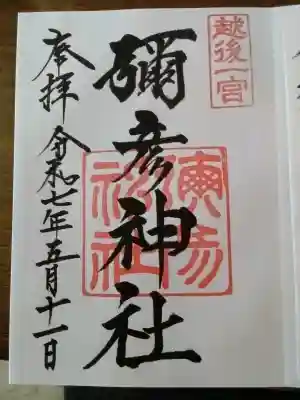 越後一宮
彌彦神社
奉拝 令和七年五月十一日
彌彦神社